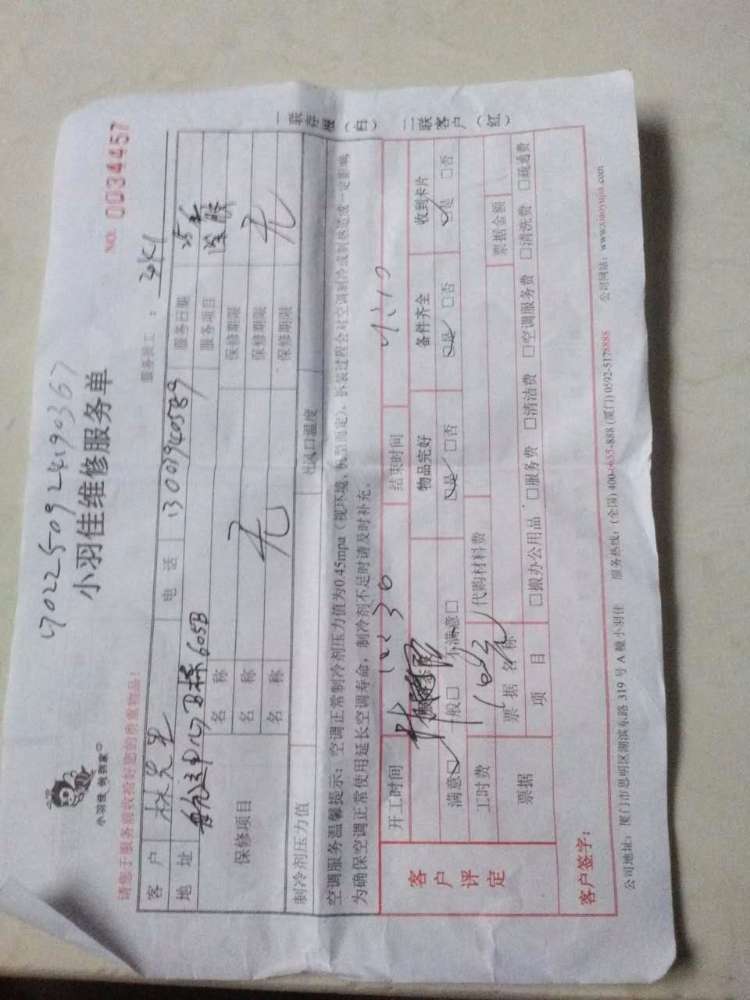 G02250924190367
小羽佳 到到家
小羽佳维修服务单
NO. 0034457
请您于服务前收拾好您的贵重物品!
服务员工:
客户 林先生 电话 13001940589 服务日期
地址 航运中心B栋605B 服务项目
保修项目 名称 无 保修期限 无
名称 保修期限
名称 保修期限
制冷剂压力值 出风口温度
空调服务温馨提示:空调正常制冷剂压力值为0.45mpa(视环境、机型而定),拆装过程会对空调制冷或制热造成一定影响,
为确保空调正常使用延长空调寿命,制冷剂不足时请及时补充。
一联存根(白) 二联客户(红)
客户评定
开工时间 结束时间
满意□ 一般□ 不满意□ 物品完好 □是 □否 备件齐全 □是 □否 收到卡片 □是 □否
工时费 160元 代购材料费
票据 票据名称 票据金额
项目 □搬办公用品 □服务费 □清洁费 □空调服务费 □清洗费 □疏通费
客户签字:
公司地址:厦门市思明区湖滨东路 319 号 A 幢小羽佳 服务热线:(全国) 400-6655-888 (厦门) 0592-5178888 公司网站:www.xiaoyujia.com